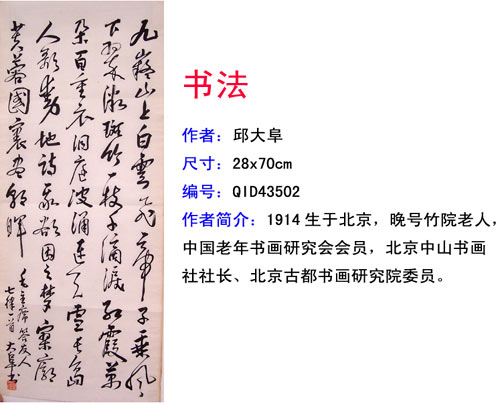 九嶷山上白雲飛帝子乘風
下翠微斑竹一枝千滴淚紅霞萬
朵百重衣洞庭波涌連天雪長島
人歌動地詩我欲因之夢寥廓
芙蓉國裏盡朝暉
毛主席答友人
七律一首 大阜书
书法
作者：邱大阜
尺寸：28x70cm
编号：QID43502
作者简介：1914生于北京，晚号竹院老人，
中国老年书画研究会会员，北京中山书画
社社长、北京古都书画研究院委员。